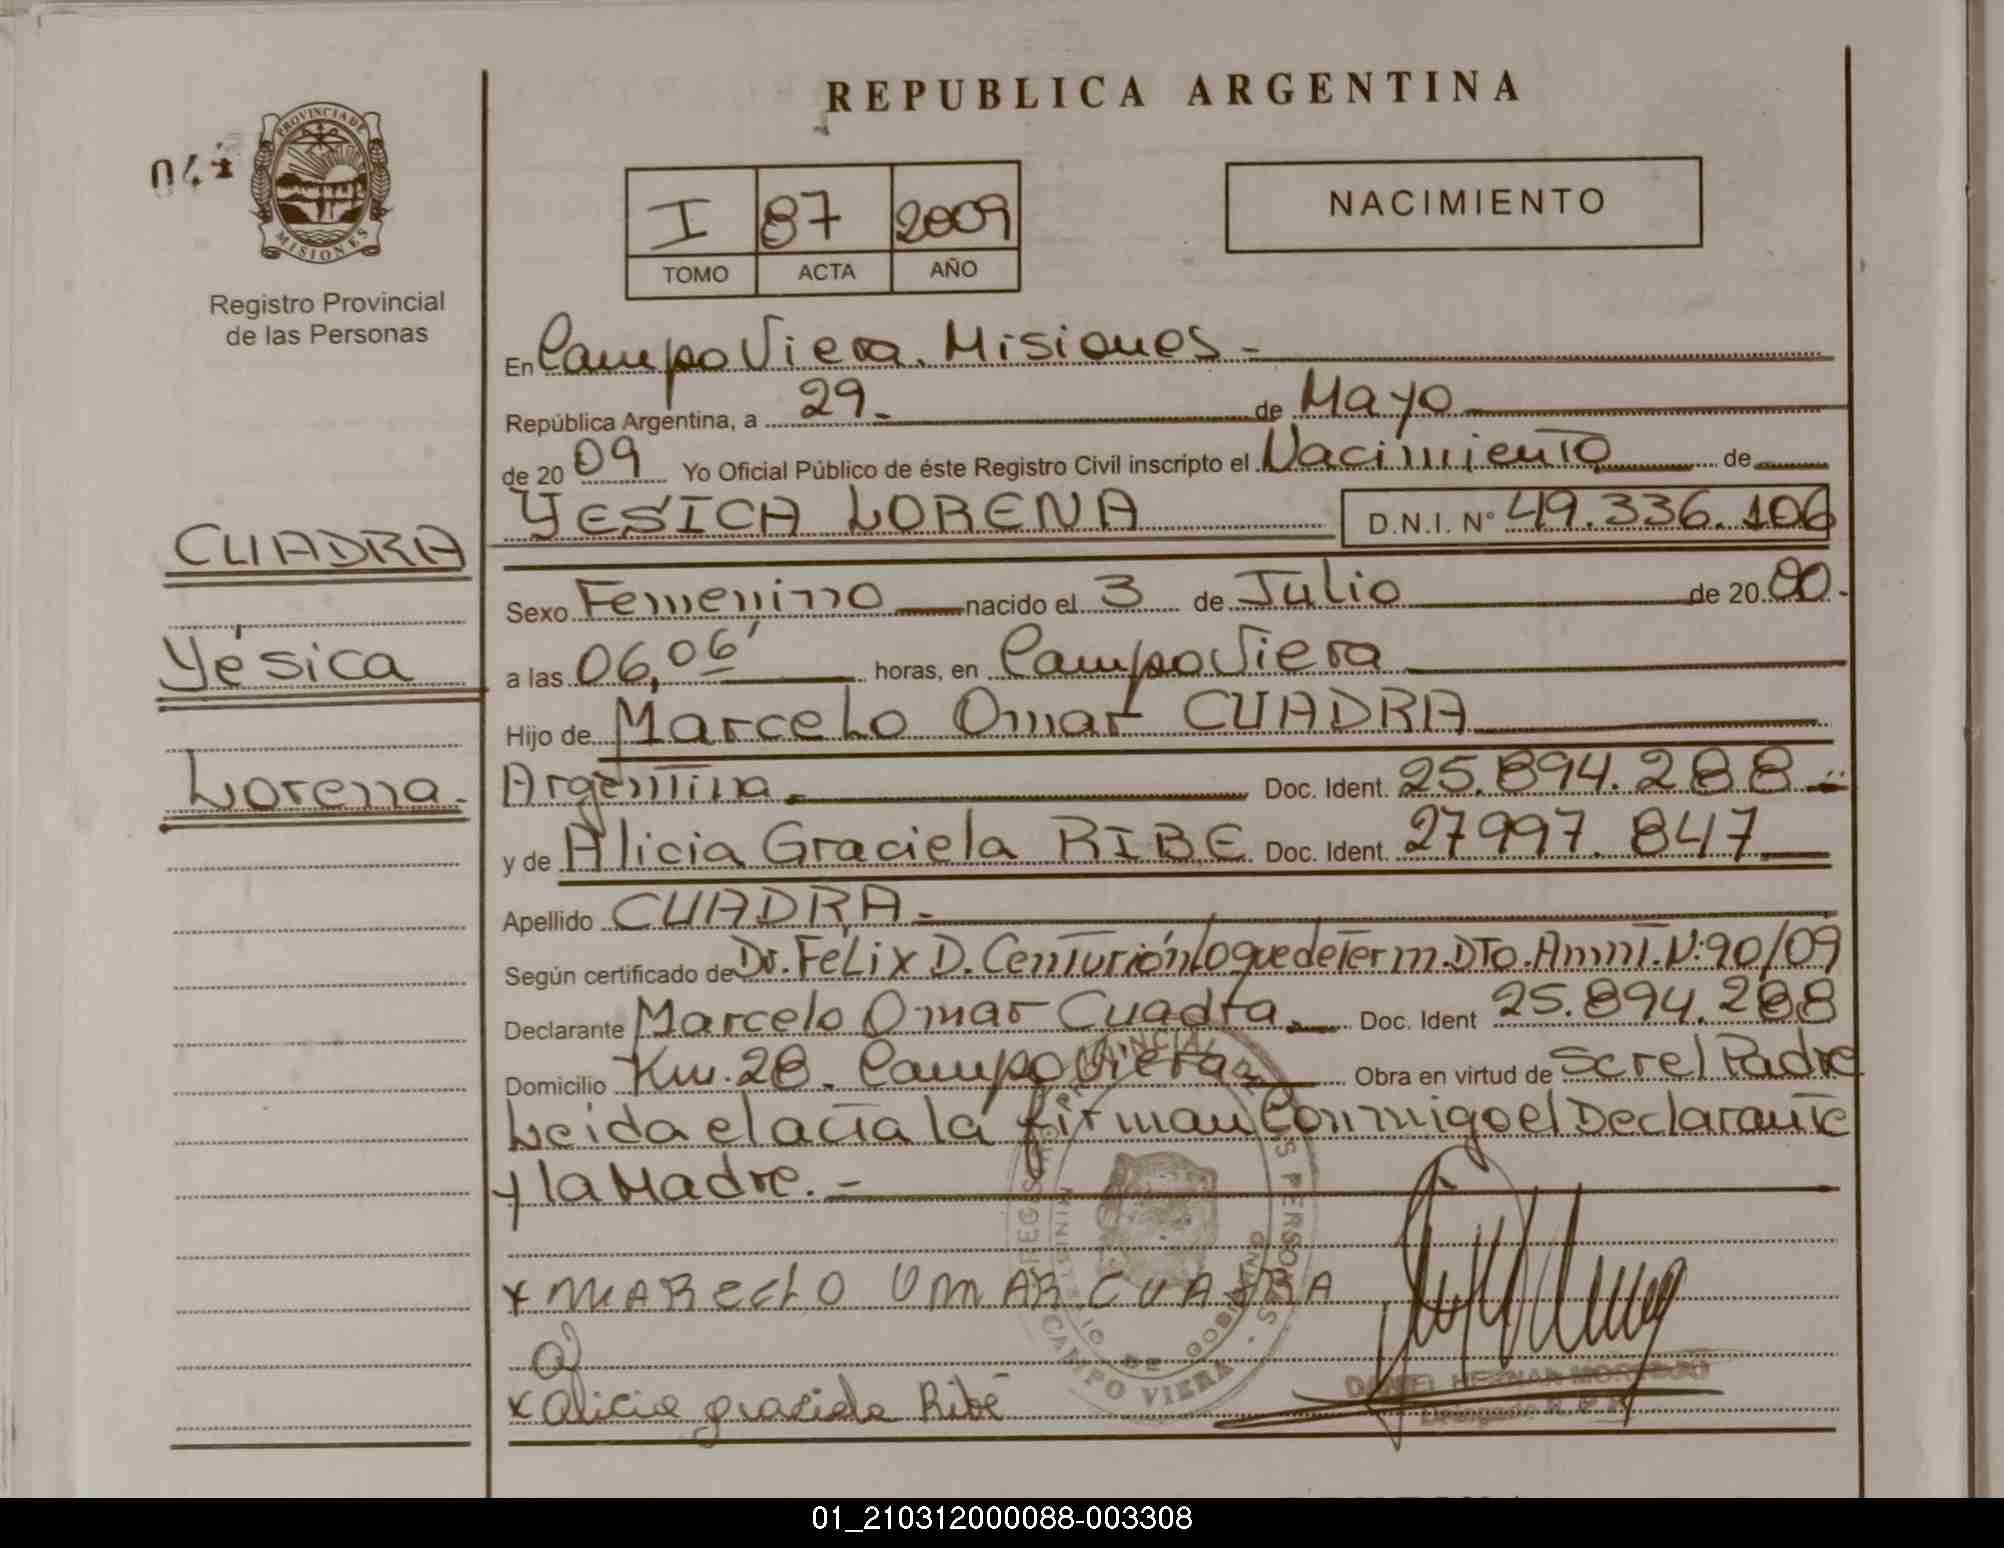 REPUBLICA ARGENTINA
PROVINCIA DE
MISIONES
Registro Provincial
de las Personas
I 87 2009
TOMO ACTA AÑO
NACIMIENTO
En Campo Viera. Misiones -
República Argentina, a 29 - de Mayo
de 20 09 Yo Oficial Público de éste Registro Civil inscripto el Nacimiento de
YESICA LORENA D.N.I. N° 49.336.106
CUADRA
Sexo Femenino nacido el 3 de Julio de 20 00.-
Yésica
a las 06,06' horas, en Campo Viera
Hijo de Marcelo Omar CUADRA
Lorena.
Argentina. Doc. Ident. 25.894.288
y de Alicia Graciela RIBE Doc. Ident. 27997.847
Apellido CUADRA -
Según certificado de Dr. Félix D. Centurión lo que determ. DTo. Amnt. N: 90/09
Declarante Marcelo Omar Cuadra. Doc. Ident 25.894.288
Domicilio Km. 28. Campo Viera Obra en virtud de Screl Padre
Leida el acta la firman Conmigo el Declarante
y la Madre. -
x MARcelo OMAR CUADRA
x alicia graciela Ribé
CAMPO VIERA
DANIEL HERNAN
01_210312000088-003308